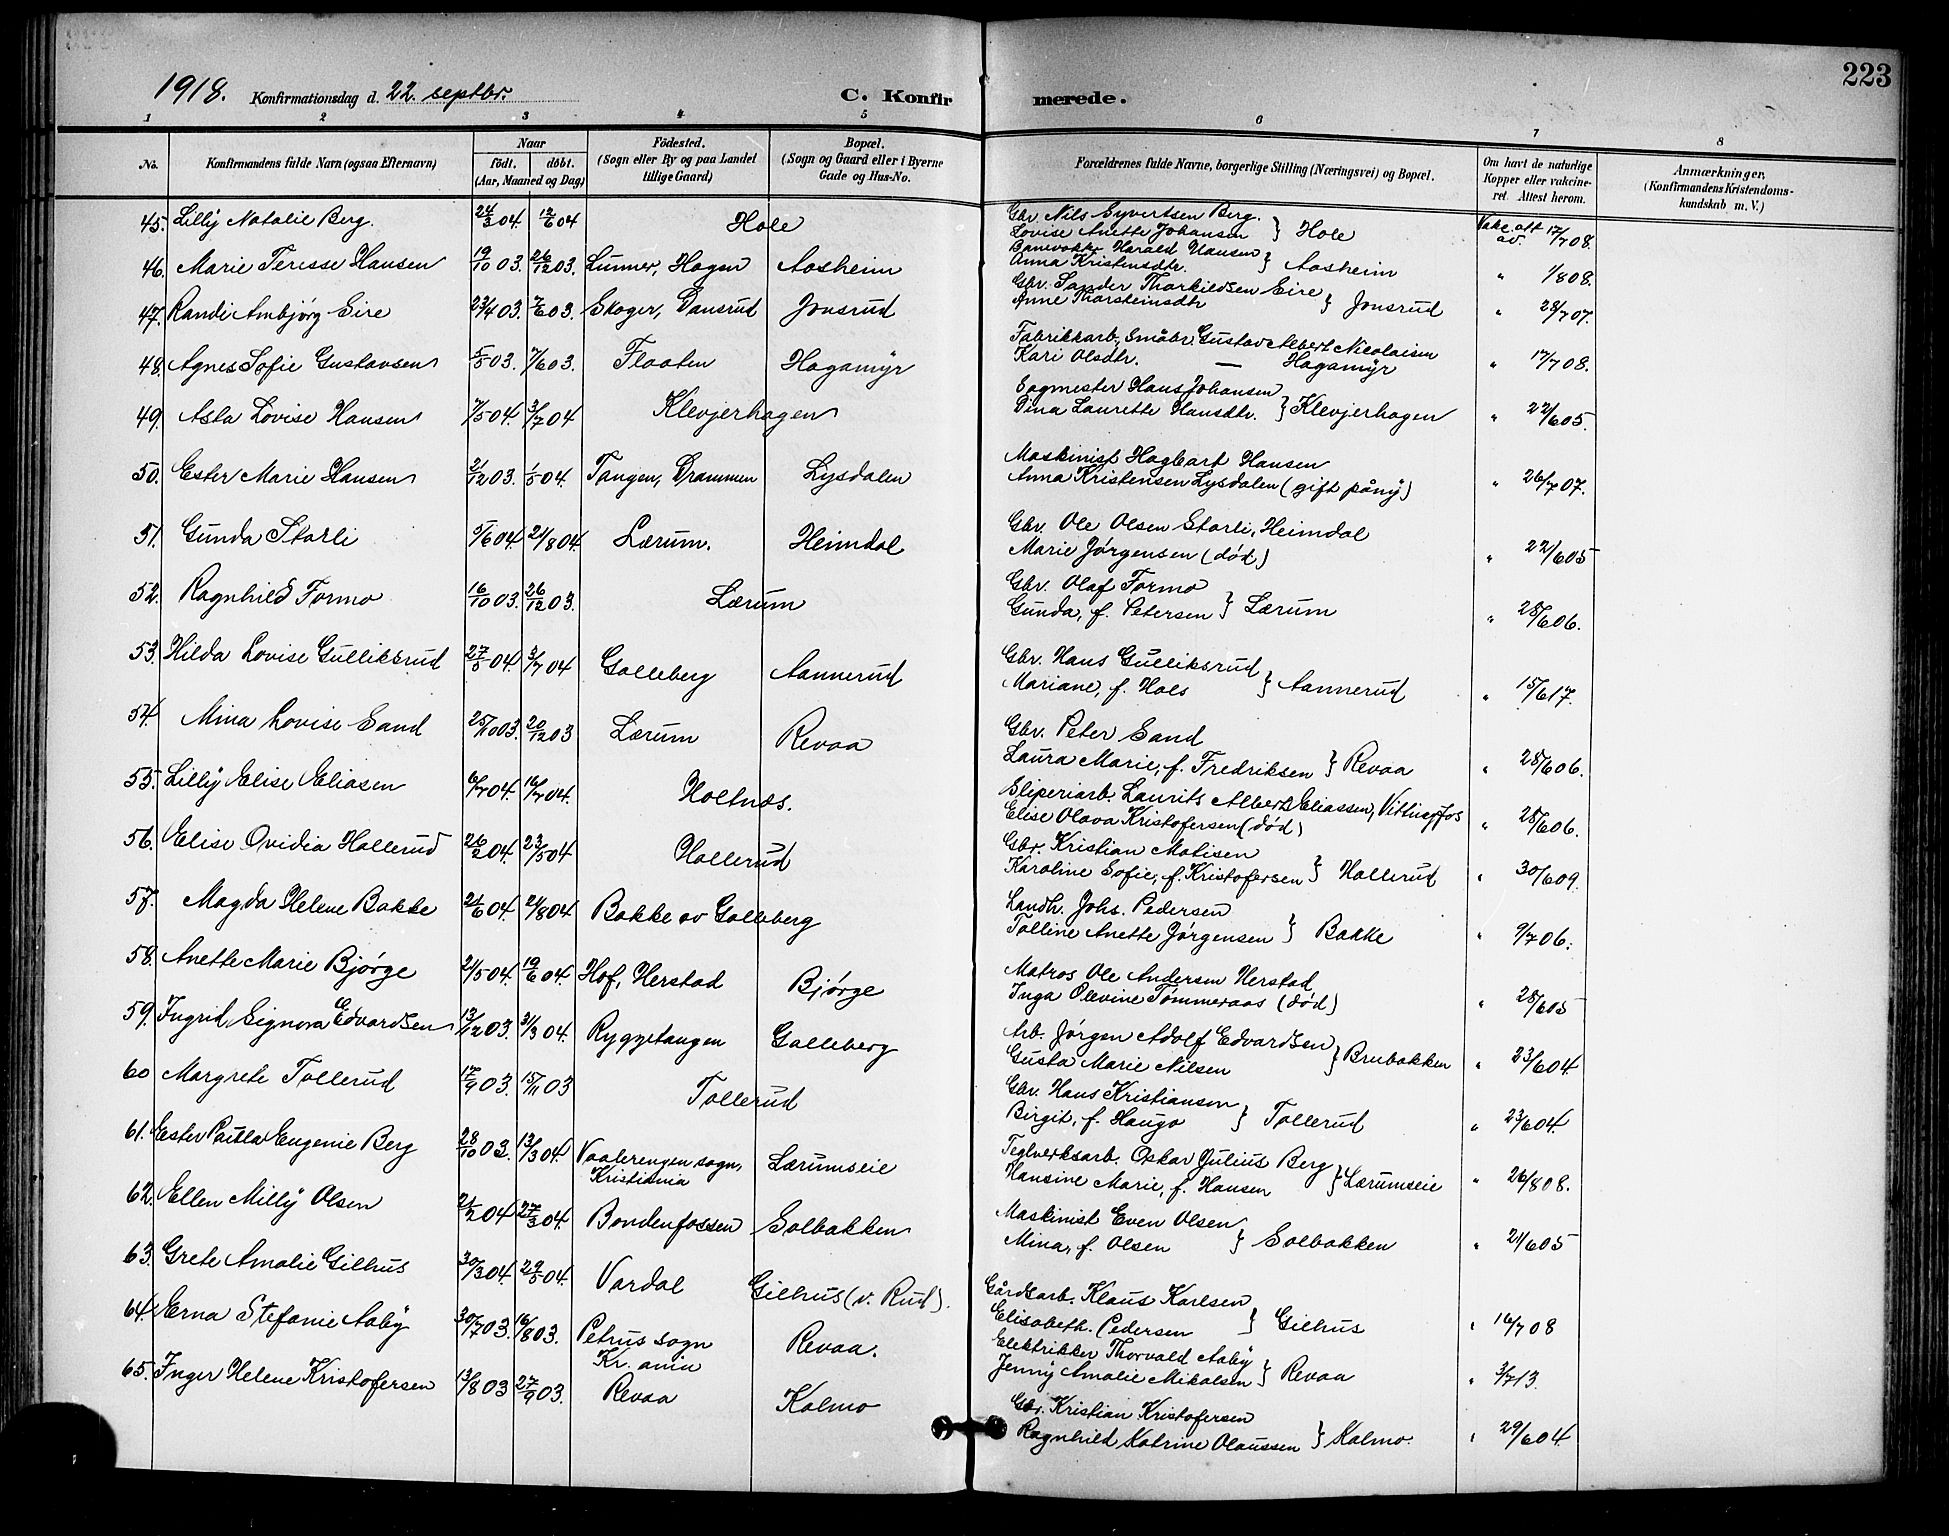 223
1918. Konfirmationsdag d. 22. septbr. C. Konfirmerede.
1 2 3 4 5 6 7 8
No. Konfirmandens fulde Navn (ogsaa Efternavn) Naar født. døbt. (Aar, Maaned og Dag) Fødested. (Sogn eller By og paa Landet tillige Gaard) Bopæl. (Sogn og Gaard eller i Byerne Gade og Hus-No. Forældrenes fulde Navne, borgerlige Stilling (Næringsvei) og Bopæl. Om havt de naturlige Kopper eller vakcineret. Attest herom. Anmærkninger, (Konfirmandens Kristendomskundskab m. V.)
45. Lilly Natalie Berg. 24/3 04. 12/6 04 Hole Gbr. Nils Syvertsen Berg.
Lovise Anette Johansen } Hole Vakc. att av. 17/7 08.
46. Marie Teresse Hansen 19/10 03. 26/12 03. Lunner, Hagen Aasheim Banevokter Harald Hansen
Anna Kristensdtr. } Aasheim " 1/8 08.
47. Randi Ambjørg Eire 23/4 03. 7/6 03. Skoger, Dansrud Jonsrud Gbr. Sander Thorkildsen Eire
Anne Thorsteinsdtr } Jonsrud " 23/7 07.
48. Agnes Sofie Gustavsen 5/5 03. 7/6 03. Flaaten Hagamyr Fabrikkarb. Småbr. Gustav Albert Nicolaisen
Kari Olsdtr. — Hagamyr " 17/7 08.
49. Asta Lovise Hansen 7/5 04. 3/7 04 Klevjerhagen Sagmester Hans Johansen
Dina Laurette Hansdtr. } Klevjerhagen " 22/6 05.
50. Ester Marie Hansen 2/12 03. 1/5 04. Tangen, Drammen Lysdalen Maskinist Hagbart Hansen
Anna Kristensen Lysdalen (gift påny) " 26/7 07.
51. Gunda Storli 5/6 04. 21/8 04. Lærum. Heimdal Gbr. Ole Olsen Storli, Heimdal
Marie Jørgensen (død.) " 22/6 05
52. Ragnhild Formo 16/10 03. 26/12 03. Lærum Gbr. Olaf Formo
Gunda, f. Petersen } Lærum " 28/6 06.
53. Hilda Lovise Gulliksrud 27/5 04. 3/7 04 Galleberg Aannerud Gbr. Hans Gulliksrud
Mariane, f. Hals } Aannerud " 15/6 17.
54. Mina Lovise Sand 25/10 03. 20/12 03 Lærum Revaa Gbr. Peter Sand
Laura Marie, f. Fredriksen } Revaa " 28/6 06.
55. Lilly Elise Eliasen 6/7 04. 16/7 04. Holtnæs. Sliperiarb. Laurits Albert Eliassen, Vittingfos
Elise Olava Kristofersen (død) " 28/6 06.
56. Elise Ovidia Hallerud 26/2 04. 23/5 04 Hallerud Gbr. Kristian Matisen
Karoline Sofie, f. Kristofersen } Hallerud " 30/6 09.
57. Magda Helene Bakke 21/6 04. 21/8 04 Bakke av Galleberg Landh. Johs. Pedersen
Tolline Anette Jørgensen } Bakke " 9/7 06.
58. Anette Marie Bjørge 21/5 04. 19/6 04. Hof, Herstad Bjørge Matros Ole Andersen Herstad
Inga Olevine Tømmeraas (død) " 28/6 05
59. Ingrid Signora Edvardsen 13/12 03. 31/3 04. Ryggetangen Galleberg Arb. Jørgen Adolf Edvardsen
Gusta Marie Nilsen } Brubakken " 23/6 04.
60 Margrete Tollerud 17/9 03. 15/11 03 Tollerud Gbr. Hans Kristiansen
Birgit, f. Haugo } Tollerud " 23/6 04.
61. Ester Paula Eugenie Berg 28/10 03. 13/3 04. Vaalerengen sogn, Kristiania Lærumseie Teglverksarb. Oskar Julius Berg
Hansine Marie, f. Hansen } Lærumseie " 26/8 08.
62. Ellen Milly Olsen 21/2 04 27/3 04. Bondenfossen Solbakken Maskinist Even Olsen
Mina, f. Olsen } Solbakken " 21/6 05
63. Grete Amalie Gilhus 30/3 04. 29/5 04. Vardal Gilhus (v. Rud). Gårdsarb. Klaus Karlsen
Elisabeth. Pedersen } Gilhus " 16/7 08
64. Erna Stefanie Aaby 30/7 03. 16/8 03. Petrus sogn Kr.ania Revaa. Elektrikker Thorvald Aaby
Jenny Amalie Mikalsen } Revaa " 3/7 13.
65. Inger Helene Kristofersen 13/8 03 27/9 03. Revaa Kalmo Gbr. Kristian Kristofersen
Ragnhild Katrine Olaussen } Kalmo. " 29/6 04.